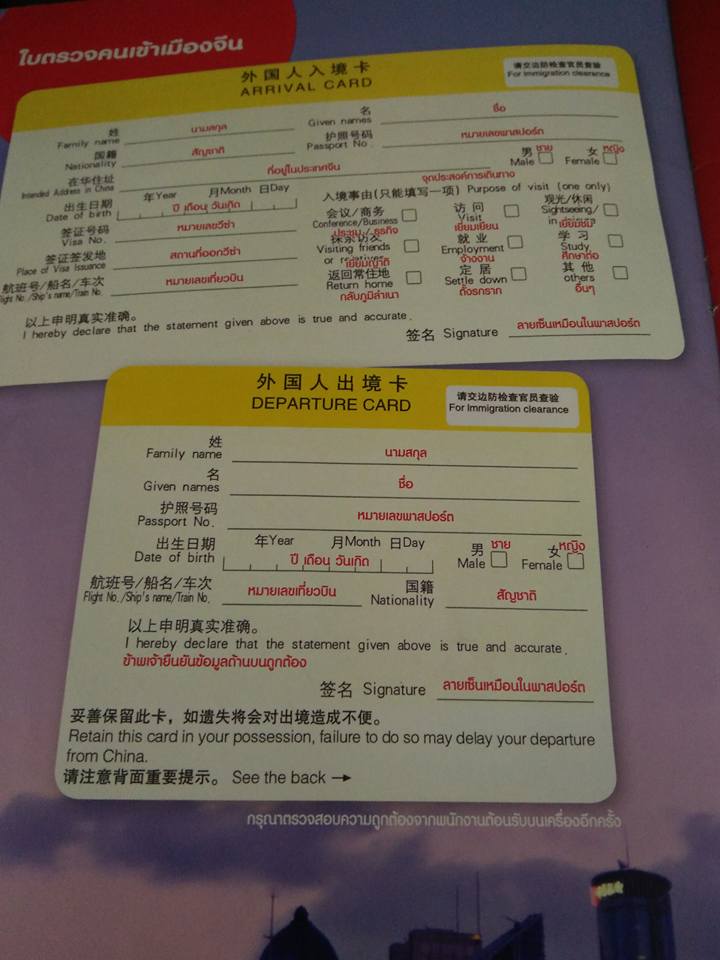 ใบตรวจคนเข้าเมืองจีน
外国人入境卡
ARRIVAL CARD
请交边防检查官员查验
For Immigration clearance
姓
Family name
นามสกุล
名
Given names
ชื่อ
国籍
Nationality
สัญชาติ
护照号码
Passport No.
หมายเลขพาสปอร์ต
在华住址
Intended Address in China
ที่อยู่ในประเทศจีน
男 ชาย
Male
女 หญิง
Female
出生日期
Date of birth
年Year 月Month 日Day
ปี เดือน วันเกิด
จุดประสงค์การเดินทาง
入境事由(只能填写一项) Purpose of visit (one only)
签证号码
Visa No.
หมายเลขวีซ่า
会议/商务
Conference/Business
ประชุม / ธุรกิจ
访 问
Visit
เยี่ยมเยียน
观光/休闲
Sightseeing/
เยี่ยมชม
签证签发地
Place of Visa Issuance
สถานที่ออกวีซ่า
探亲访友
Visiting friends
or relatives
เยี่ยมญาติ
就 业
Employment
จ้างงาน
学 习
Study
ศึกษาต่อ
航班号/船名/车次
Flight No./Ship's name/Train No.
หมายเลขเที่ยวบิน
返回常住地
Return home
กลับภูมิลำเนา
定 居
Settle down
ตั้งรกราก
其 他
others
อื่นๆ
以上申明真实准确。
I hereby declare that the statement given above is true and accurate.
签名 Signature ลายเซ็นเหมือนในพาสปอร์ต
外国人出境卡
DEPARTURE CARD
请交边防检查官员查验
For Immigration clearance
姓
Family name
นามสกุล
名
Given names
ชื่อ
护照号码
Passport No.
หมายเลขพาสปอร์ต
出生日期
Date of birth
年Year 月Month 日Day
ปี เดือน วันเกิด
男 ชาย
Male
女 หญิง
Female
航班号/船名/车次
Flight No./Ship's name/Train No.
หมายเลขเที่ยวบิน
国籍
Nationality
สัญชาติ
以上申明真实准确。
I hereby declare that the statement given above is true and accurate.
ข้าพเจ้ายืนยันข้อมูลด้านบนถูกต้อง
签名 Signature ลายเซ็นเหมือนในพาสปอร์ต
妥善保留此卡，如遗失将会对出境造成不便。
Retain this card in your possession, failure to do so may delay your departure
from China.
请注意背面重要提示。 See the back →
กรุณาตรวจสอบความถูกต้องจากพนักงานต้อนรับบนเครื่องอีกครั้ง